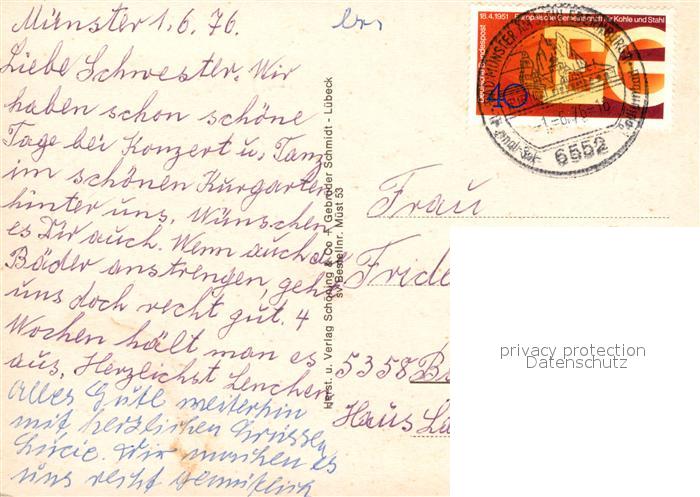 Münster 1.6.76.
Liebe Schwester. Wir
haben schon schöne
Tage bei Konzert u. Tanz
im schönen Kurgarten
hinter uns. Wünschen
es Dir auch. Wenn auch d
Bäder anstrengen, geht
uns doch recht gut. 4
Wochen hält man es
aus. Herzlichst Lenchen
Alles Gute weiterhin
mit herzlichen Grüssen
Lucie. Wir machen es
uns recht gemütlich
Herst. u. Verlag Schöning & Co + Gebrüder Schmidt - Lübeck
sv Bestellnr. Müst 53
18.4.1951 Europäische Gemeinschaft für Kohle und Stahl
Deutsche Bundespost
40
MÜNSTER AM STEIN
-1.-6.76-16
6552
Frau
Fride
5358 B
Haus La
privacy protection
Datenschutz